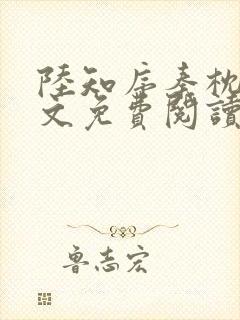 陸知秦枕
文免費閱讀
魯志宏